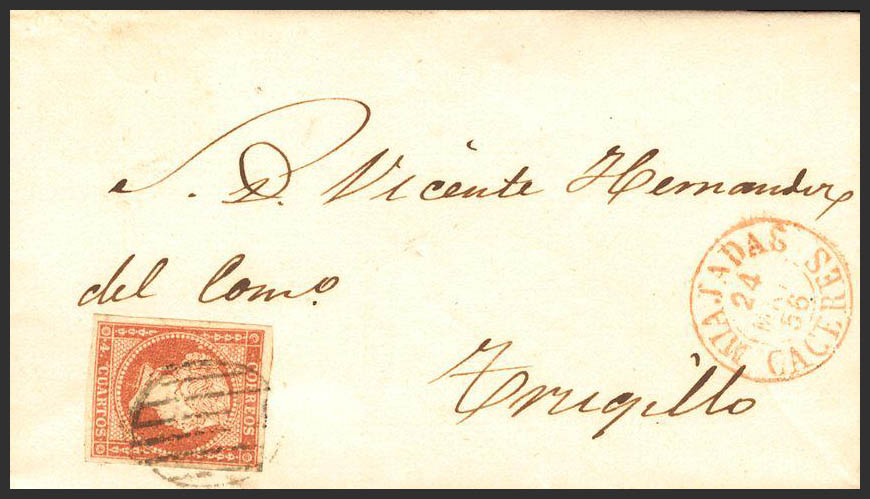 S. D. Vicente Hernandez
del Como
Trugillo
MIAJADAS
24
56
CACERES
4. CUARTOS
CORREOS